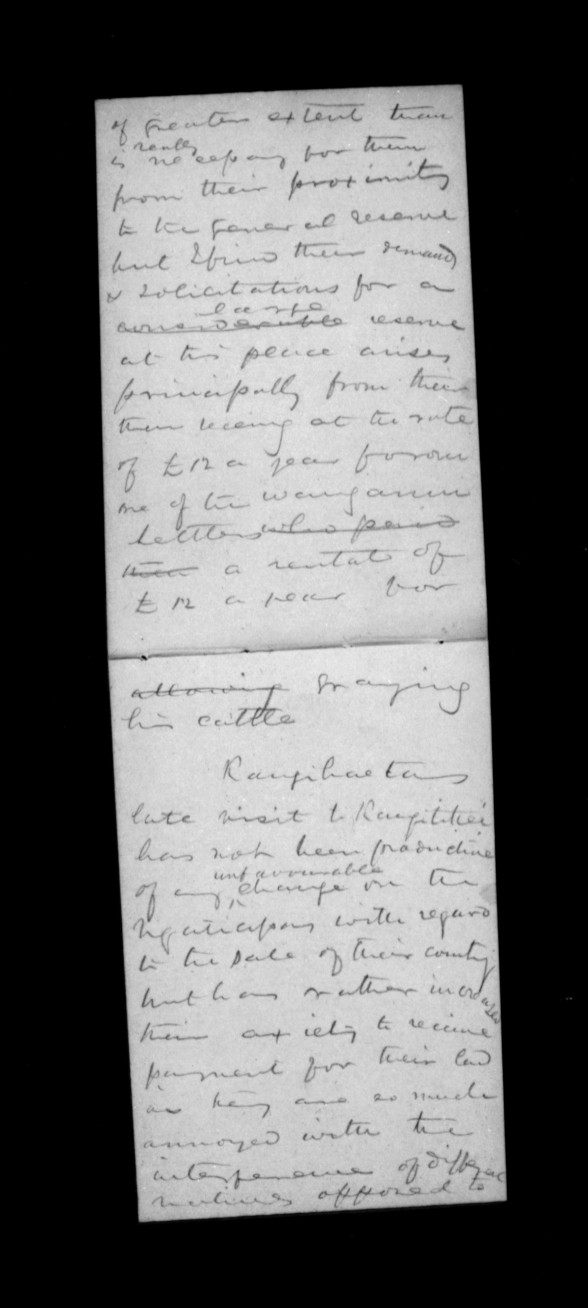 of greater extent than
is really necessary for them
from their proximity
to the general reserve
but I find their demand
& solicitations for a
considerable large reserve
at this place arises
principally from their
then receiving at the rate
of £12 a year from
one of the Wanganui
settlers who paid
them a rental of
£12 a year for
allowing grazing
his cattle
Rangihaeta's
late visit to Rangitikei
has not been productive
of any unfavourable change on the
Ngatiapas with regard
to the sale of their country
but has rather increased
their anxiety to receive
payment for their land
as they are so much
annoyed with the
interference of different
natives opposed to